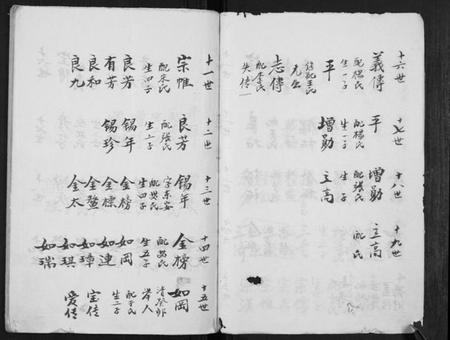 十六世
義傳
配楊氏
生一子
平
志傳
配李氏
失傳
十七世
平
配楊氏
生一子
增勛
十八世
增勛
配張氏
生一子
立高
十九世
立高
配 氏
十一世
宗惟
配宋氏
生四子
良芳
有芳
良和
良九
十二世
良芳
配張氏
生二子
錫年
錫珍
十三世
錫年
字東安
生四子
金榜
金標
金鰲
金太
十四世
金榜
生五子
如岡
如連
如璋
如琪
如瑞
十五世
如岡
清癸卯
舉人
配于氏
生二子
宝传
爱传